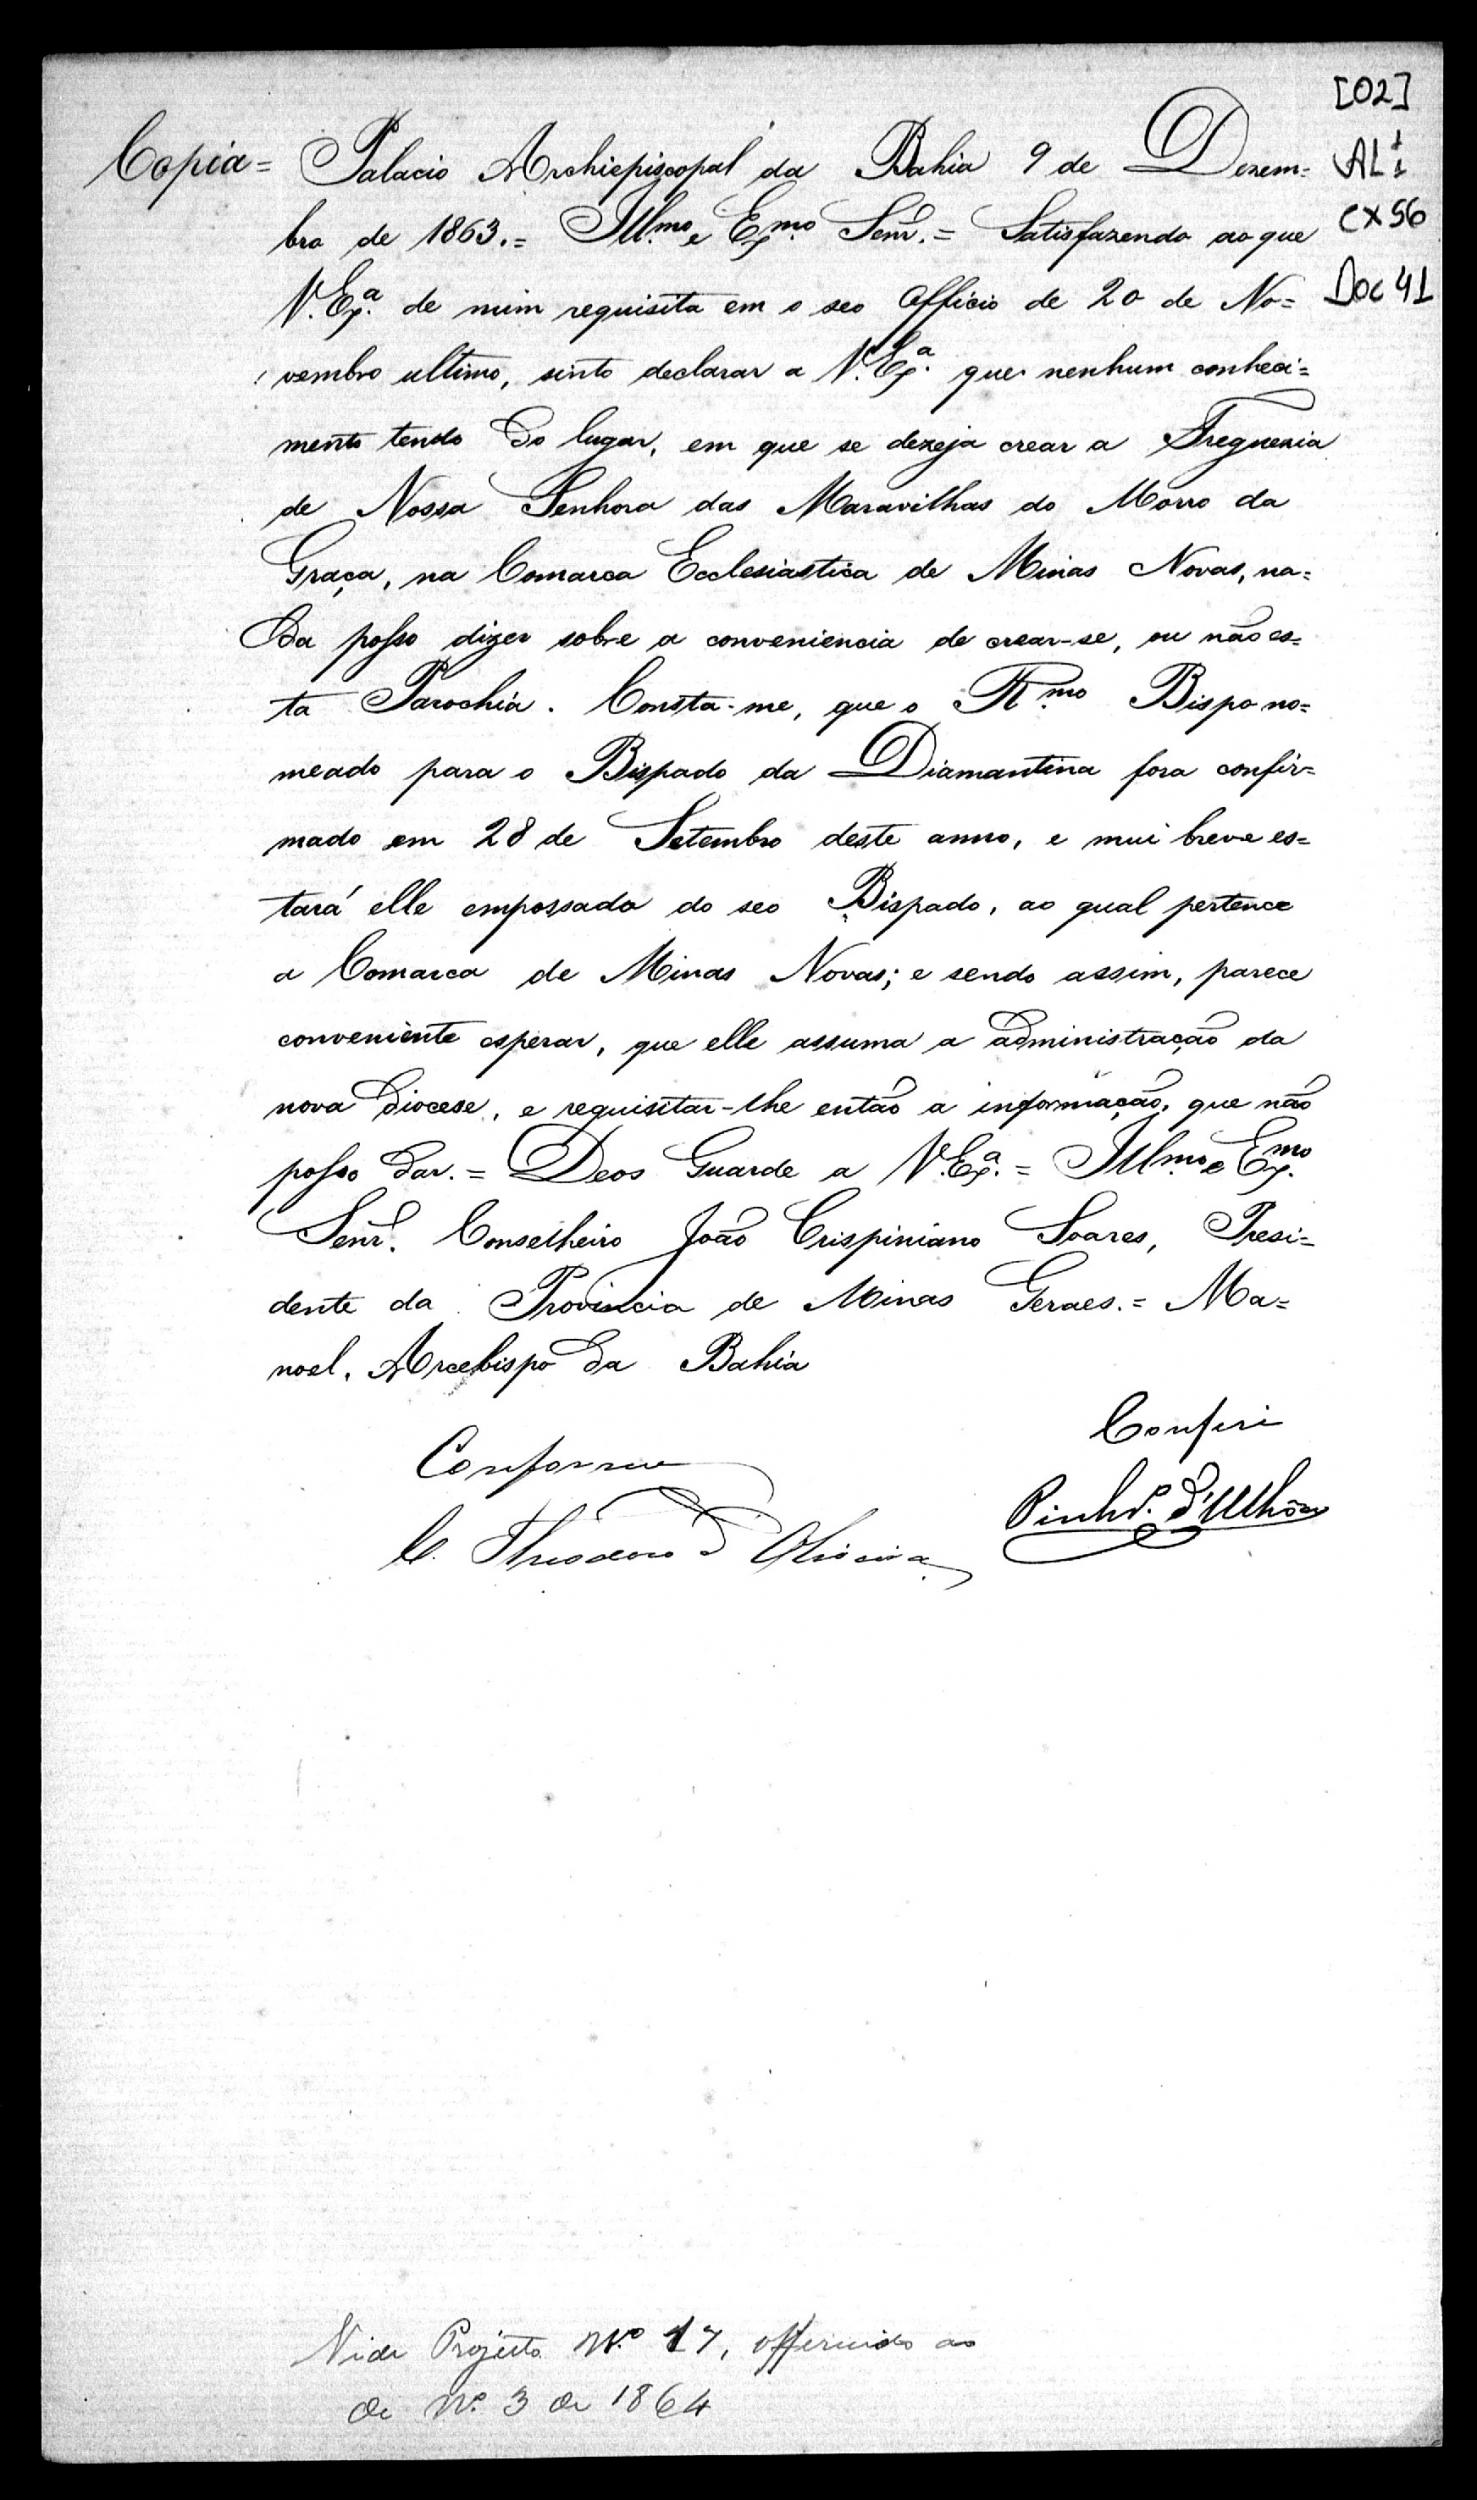 [02]
AL 1
1
CX56
Doc 41
Copia = Palacio Archiepiscopal da Bahia 9 de Dezem=
bro de 1863. = Illmo. e Exmo. Senr. = Satisfazendo ao que
V. Exa. de mim requisita em o seo Officio de 20 de No=
vembro ultimo, sinto declarar a V. Exa. que nenhum conheci=
mento tendo do lugar, em que se dezeja crear a Freguezia
de Nossa Senhora das Maravilhas do Morro da
Graça, na Comarca Ecclesiastica de Minas Novas, na=
da posso dizer sobre a conveniencia de crear-se, ou não es=
ta Parochia. Consta-me, que o Rmo. Bispo no=
meado para o Bispado da Diamantina fora confir=
mado em 28 de Setembro deste anno, e mui breve es=
tará elle empossado do seo Bispado, ao qual pertence
a Comarca de Minas Novas; e sendo assim, parece
conveniente esperar, que elle assuma a administração da
nova Diocese, e requisitar-lhe então a informação, que não
posso dar. = Deos Guarde a V. Exa. = Illmo. e Exmo.
Senr. Conselheiro João Crispiniano Soares, Presi=
dente da Provincia de Minas Geraes. = Ma=
noel, Arcebispo da Bahia
Conferi
Pinhro. d'Ulhôa
Conforme
C. Theodoro d'Oliveira
Vide Projecto Nº 17, offerecido ao
de Nº 3 de 1864